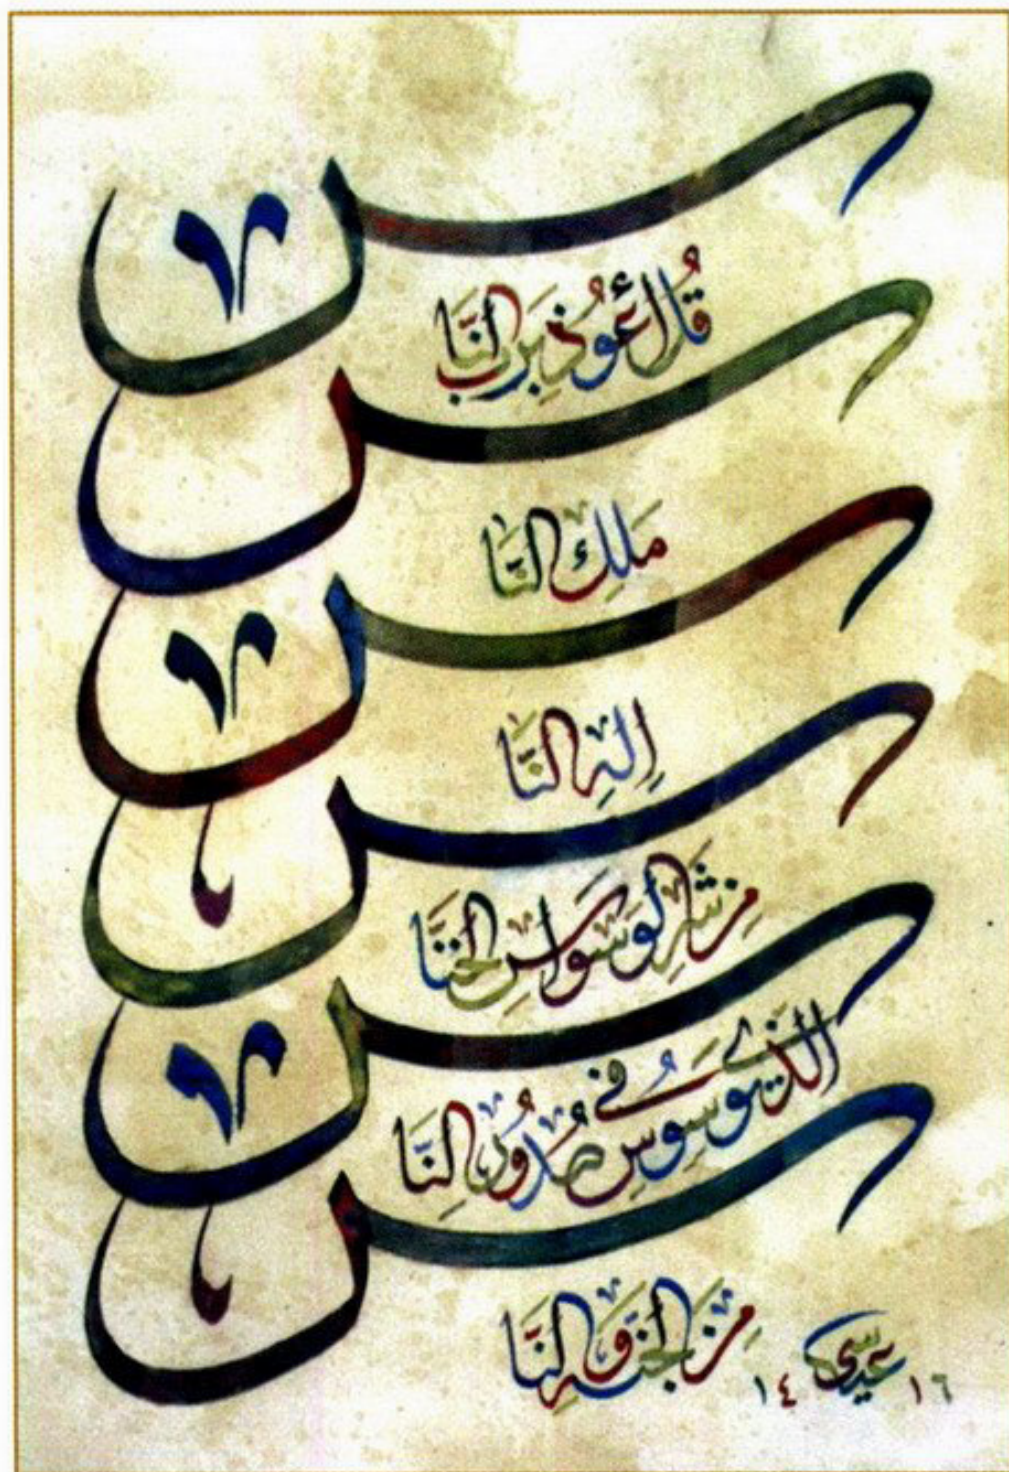 قُل أَعُوذُ بِرَبِّ النَّاس
مَلِكِ النَّاس
إِلَهِ النَّاس
مِن شَرِّ الْوَسْوَاسِ الْخَنَّاس
الَّذِي يُوَسْوِسُ فِي صُدُورِ النَّاس
مِنَ الْجِنَّةِ وَالنَّاس
١٤ عيسى ١٦